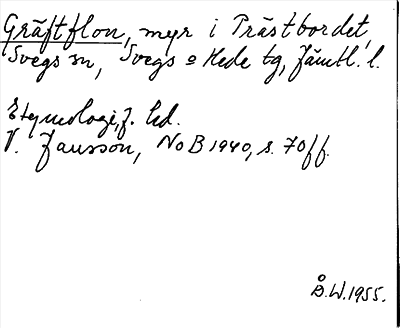 Gräftflon, myr i Prästbordet,
Svegs sn, Svegs o Hede tg, Jämtl. l.
Etymologi, f. led.
V. Jansson, NoB 1940, s. 70ff.
Å.W. 1955.